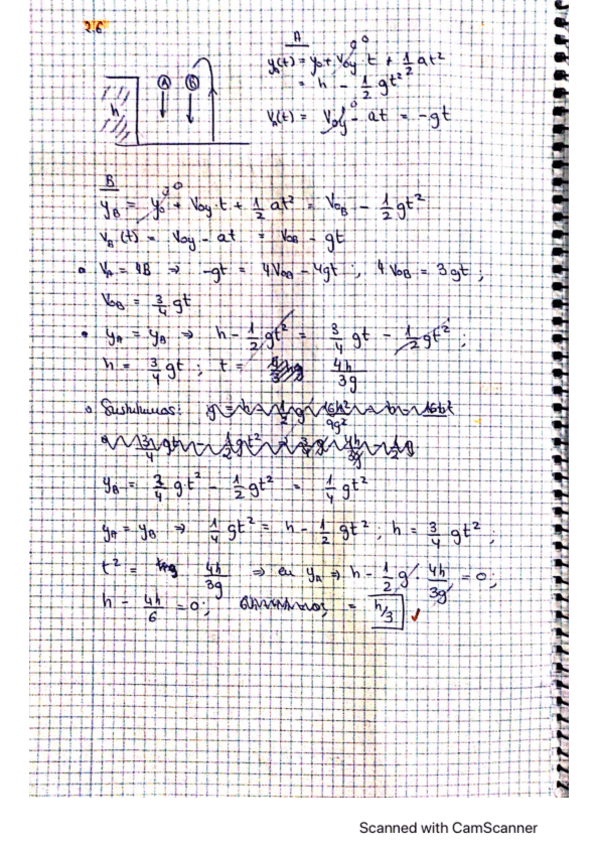 2.6
A
y_A(t) = y₀ + V₀y t + 1/2 at²
= h - 1/2 gt²
V_A(t) = V₀y - at = -gt
h A B
B
y_B = y₀ + V₀y·t + 1/2 at² = V₀B - 1/2 gt²
V_B(t) = V₀y - at = V₀B - gt
• V_A = 4B ⇒ -gt = 4V₀B - 4gt ; 4V₀B = 3gt ;
V₀B = 3/4 gt
• y_A = y_B ⇒ h - 1/2 gt² = 3/4 gt - 1/2 gt² ;
h = 3/4 gt ; t = 4h/3g
• Sustituimos:
y_B = 3/4 g·t² - 1/2 gt² = 1/4 gt²
y_A = y_B ⇒ 1/4 gt² = h - 1/2 gt² ; h = 3/4 gt² ;
t² = 4h/3g ⇒ en y_A ⇒ h - 1/2 g · 4h/3g = 0 ;
h - 4h/6 = 0 ; = h/3 ✓
Scanned with CamScanner